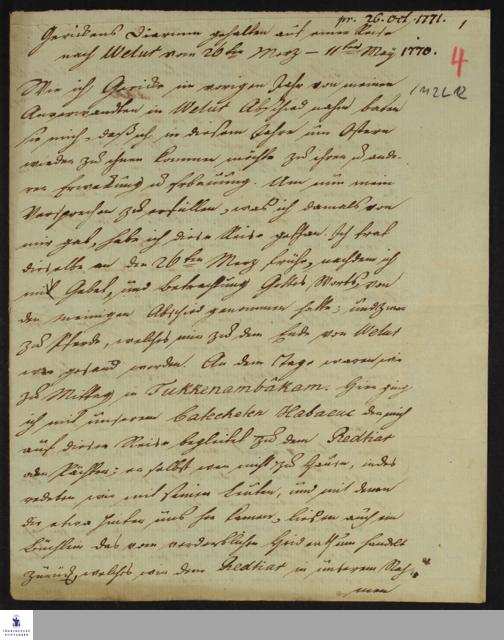 pr. 26. Oct. 1771. 1
Gerickens Diarium gehalten auf einer Reise
nach Welur vom 26ten Merz – 11ten May 1770.
4
1 12 L 12
Wie ich Gericke im vorigen Jahr von meinen
Anverwandten in Welur Abschied nahm baten
sie mich, daß ich, in diesem Jahre um Ostern
wieder zu ihnen kommen möchte zu ihrer u. ande-
rer Erweckung u Erbauung. Um nun mein
Versprechen zu erfüllen, was ich damals von
mir gab, habe ich diese Reise gethan. Ich trat
dieselbe an den 26ten Merz frühe, nachdem ich
mit Gebet, und betrachtung Gottes Worts, von
den meinigen Abschied genommen hatte; und zwar
zu Pferde, welches mir zu dem Ende von Welur
war gesand worden. An dem Tage waren wir
zu Mittag in Tukkenambâkam. Hier ging
ich mit unserem Catecheten Habacuc der mich
auf dieser Reise begleitet zu dem Redtiar
oder Pächter; er selbst war nicht zu Hause, indes
redeten wir mit seinen Leuten, und mit denen
die etwa hinter uns her kamen, ließen auch ein
Büchlein das vom verderblichen Heidenthum handelt
zurück, welches wir dem Redtiar in unserem Nah-
men
FRANCKESCHE
STIFTUNGEN